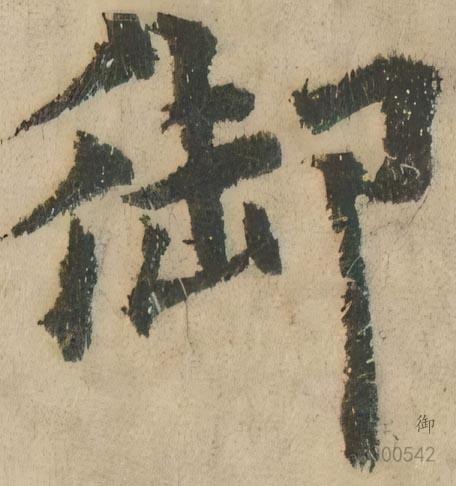 御
御
00542